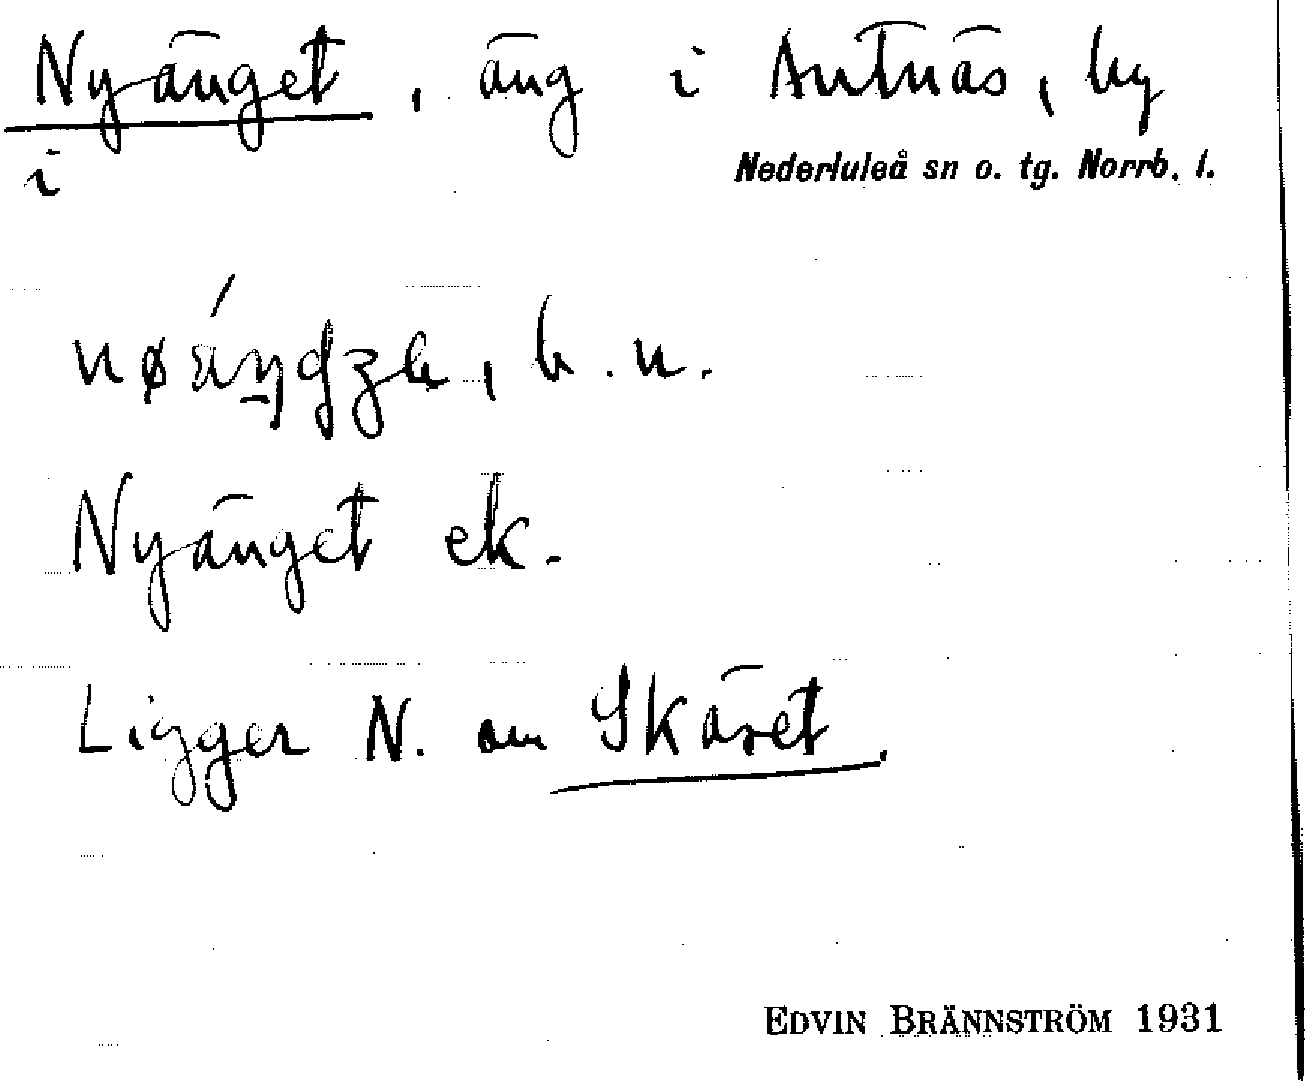 Nyänget, äng i Antnäs, by
i Nederluleå sn o. tg. Norrb. l.
b. n.
Nyänget ek.
Ligger N. om Skäret.
EDVIN BRÄNNSTRÖM 1931